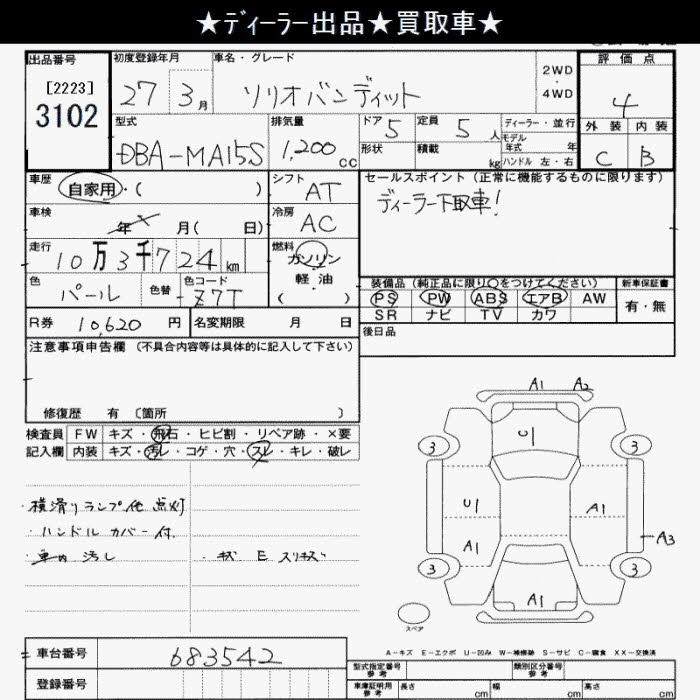 ★ディーラー出品★買取車★
出品番号 初度登録年月 車名・グレード 2WD ・ 4WD 評価点
[2223] 3102 27 3月 ソリオバンディット 4
型式 排気量 ドア 定員 ディーラー・並行 外装 内装
DBA-MA15S 1,200cc 5 5人 モデル年式 年 C B
形状 積載 kg ハンドル 左・右
車歴 自家用・( ) シフト AT セールスポイント(正常に機能するものに限ります)
ディーラー下取車!
車検 年 月( 日) 冷房 AC
走行 10万3千724km 燃料 ガソリン
軽・油
( )
色 パール 色替 色コード Z7T
装備品(純正品に限り○をつけてください) 新車保証書
PS PW ABS エアB AW 有・無
SR ナビ TV カワ
R券 10,620円 名変期限 月 日 後日品
注意事項申告欄(不具合内容等は具体的に記入して下さい)
修復歴 有〔箇所 〕
検査員 FW キズ・飛石・ヒビ割・リペア跡・×要
記入欄 内装 キズ・汚レ・コゲ・穴・スレ・キレ・破レ
・横滑りランプ他 点灯
・ハンドル カバー付.
・車内 汚し ・キズ E スリキズ
A1 A2
C
3 3
U1 A1
A1 A3
3 3
A1
スペア
A-キズ E-エクボ U-凹み W-補修跡 S-サビ C-腐食 XX-交換済
車台番号 683542 型式指定番号 参考 類別区分番号 参考
登録番号 車庫証明用 参考 長さ cm 幅 cm 高さ cm